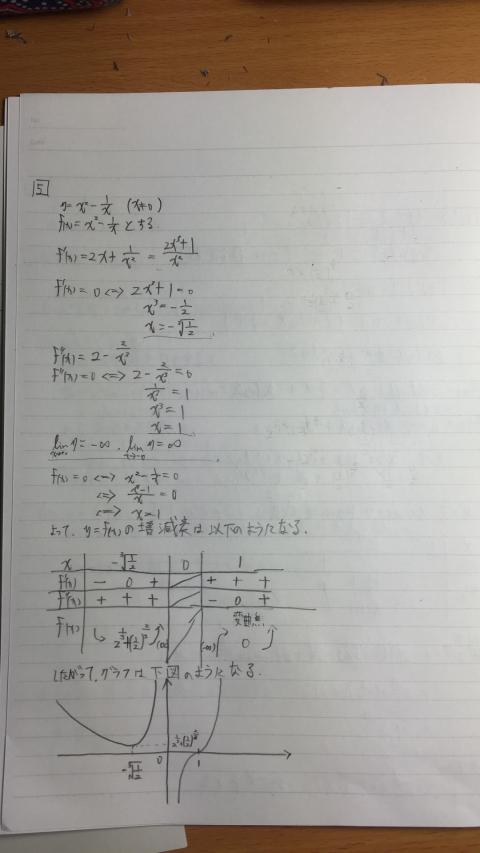 5
y = x² - 1/x (x≠0)
f(x) = x² - 1/x とする.
f'(x) = 2x + 1/x² = (2x³+1)/x²
f'(x) = 0 <=> 2x³+1 = 0
x³ = -1/2
x = -∛(1/2)
f''(x) = 2 - 2/x³
f''(x) = 0 <=> 2 - 2/x³ = 0
1/x³ = 1
x³ = 1
x = 1
lim y = -∞, lim y = ∞
f(x) = 0 <=> x² - 1/x = 0
<=> (x³-1)/x = 0
<=> x = 1
よって, y = f(x) の増減表は以下のようになる.
x | -∛(1/2) | 0 | 1
f'(x) | - 0 + | + + +
f''(x) | + + + | - 0 + 
変曲点
f(x) (∞) (-∞) 0
したがって, グラフは下図のようになる.
-∛(1/2) 0 1